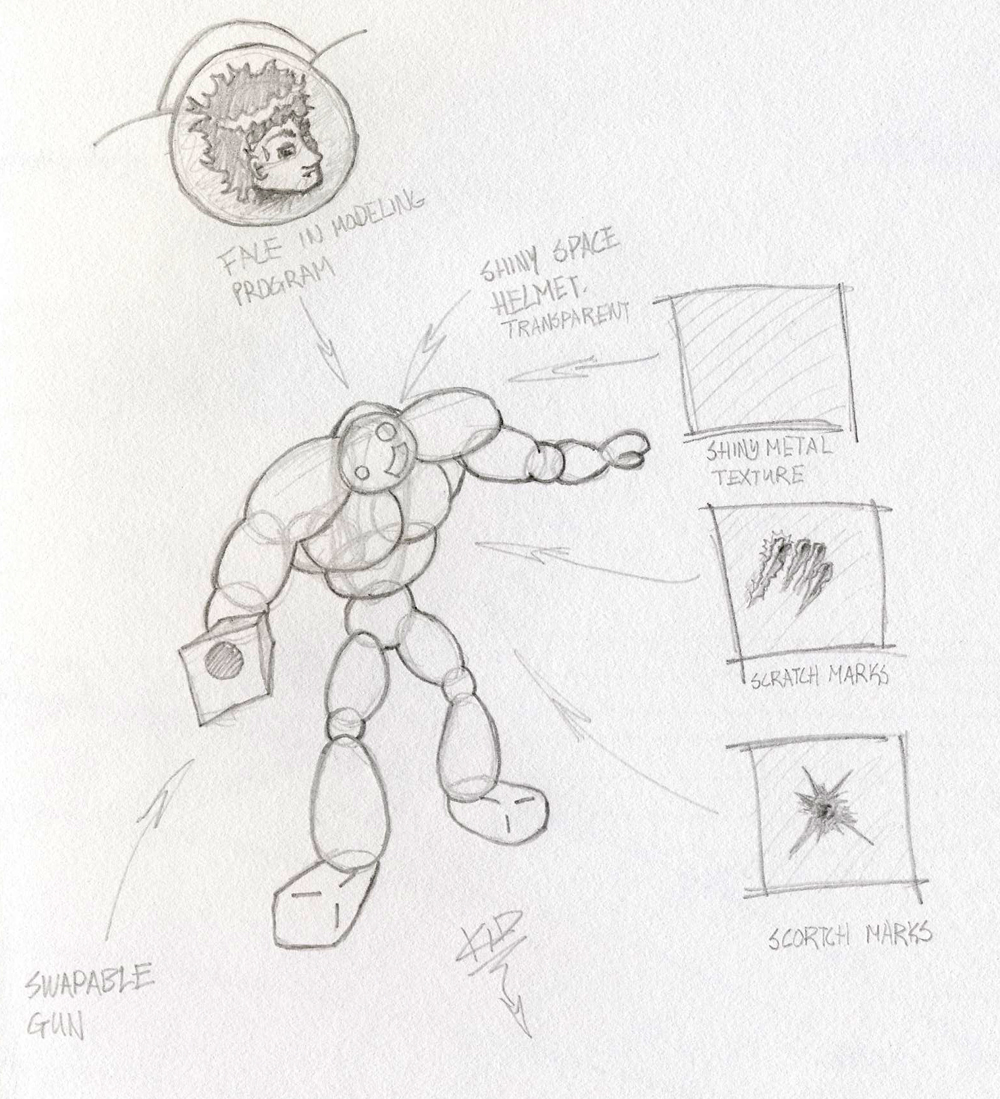 FACE IN MODELING
PROGRAM
SHINY SPACE
HELMET.
TRANSPARENT
SHINY METAL
TEXTURE
SCRATCH MARKS
SCORTCH MARKS
SWAPABLE
GUN